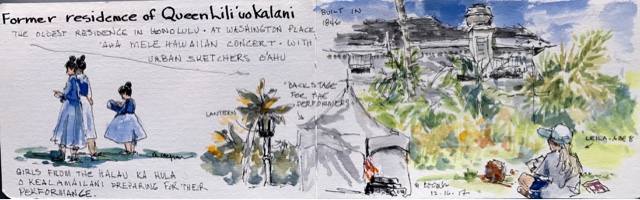 Former residence of Queen Lili'uokalani
THE OLDEST RESIDENCE IN HONOLULU • AT WASHINGTON PLACE
'AHA MELE HAWAIIAN CONCERT • WITH
URBAN SKETCHERS O'AHU
BUILT IN
1846
"BACKSTAGE"
FOR THE
PERFORMERS
LANTERN
LEILA • AGE 8
GIRLS FROM THE HALAU KA HULA
O KEALAMAILANI PREPARING FOR THEIR
PERFORMANCE.
12.16.17